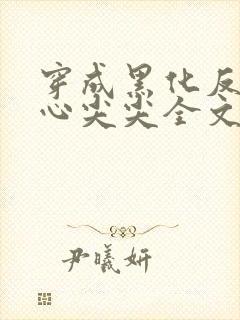 穿成黑化反
心尖尖全文
尹曦妍